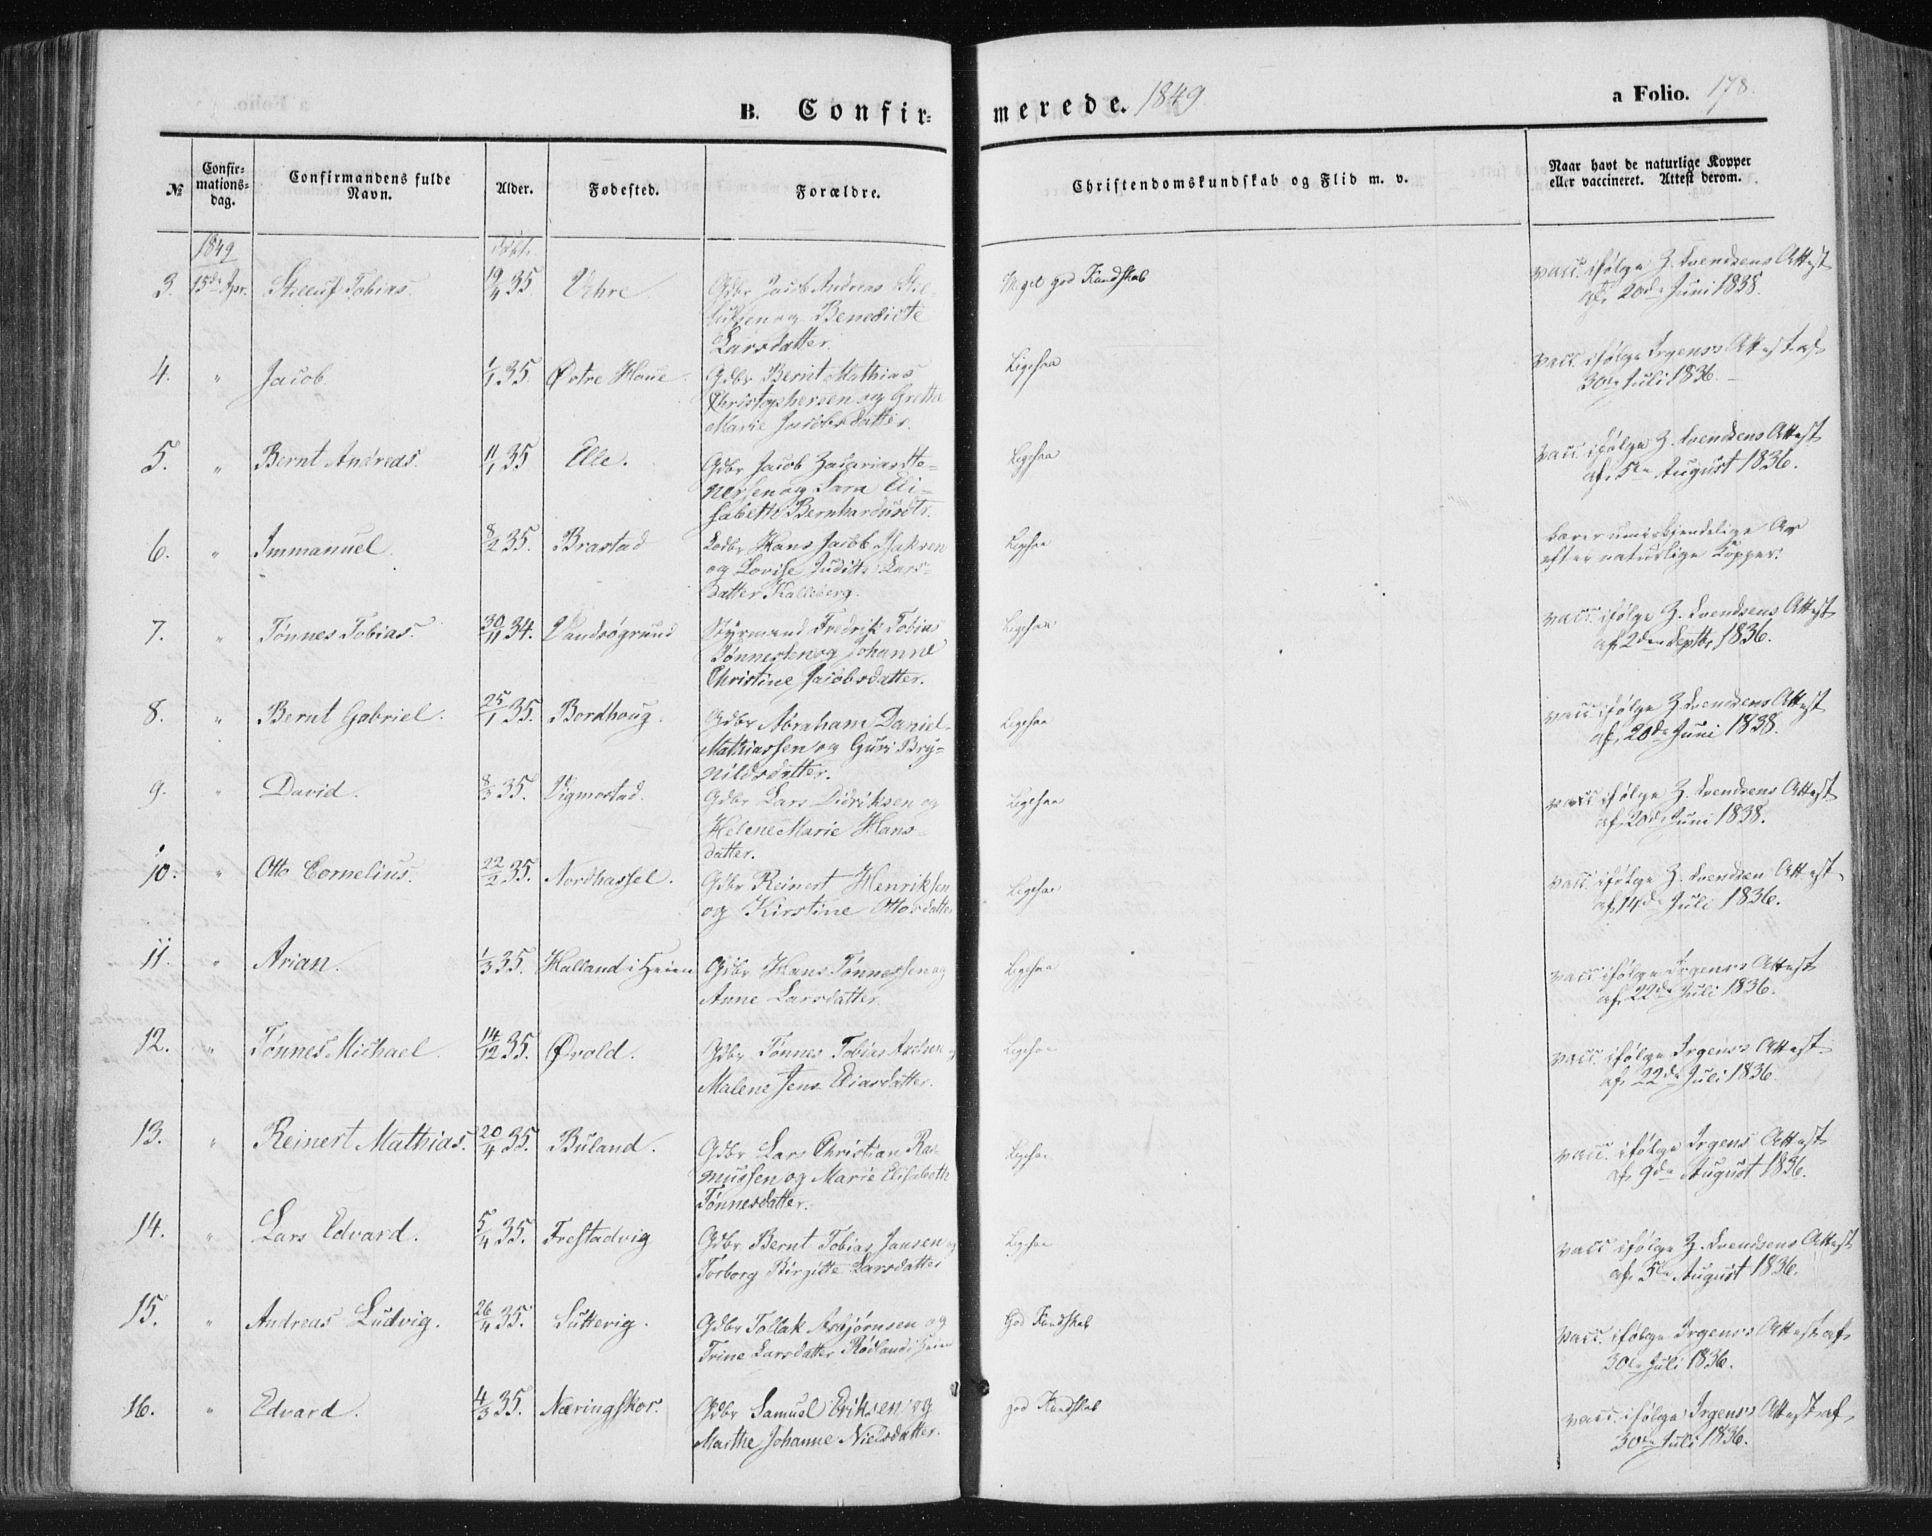 B. Confir-merede. 1849 a Folio. 178.
№ Confir-mations-dag. Confirmandens fulde Navn. Alder. Fødested. Forældre. Christendomskundskab og Flid m. v. Naar havt de naturlige Kopper eller vaccineret. Attest derom.
1849
3. 15de Apr. Tobias. 19/4 35 Vehre. Gdbr Jacob Andreas Meget god Kundskab vacc. ifølge Z. Svendsens Attest
og Benedicte af 20de Juni 1838.
Larsdatter.
4. " Jacob 1/1 35. Østre Haue. Gdbr Bernt Mathias Ligesaa vacc. ifølge Irgens's Attest af
Christophersen og Grethe 30te Juli 1836.
Marie Jacobsdatter.
5. " Bernt Andreas. 11/1 35 Elle. Gdbr Jacob Zacarias Ste- Ligesaa vacc. ifølge Z. Svendsens Attest
nersen og Sara Eli- af 5te August 1836.
sabeth Bernhardusdtr.
6. " Immanuel. 8/2 35. Brastad Hans Jacob Isaksen Ligesaa bærer umiskjendelige Ar
og Lovise Judithe Lars- efter naturlige Kopper.
datter Kalleberg.
7. " Tønnes Tobias. 30/11 34. Vandsøgrund Styrmand Fredrik Tobias Ligesaa vacc. ifølge Z. Svendsens Attest
Tønnessen og Johanne af 2den Septbr 1836.
Christine Jacobsdatter.
8. " Bernt Gabriel. 25/1 35. Bordhoug. Gdbr Abraham Daniel Ligesaa vacc. ifølge Z. Svendsens Attest
Mathiassen og Guri Bry- af 20de Juni 1838.
nildsdatter.
9. " David. 8/3 35. Vigmostad. Gdbr Lars Didriksen og Ligesaa vacc. ifølge Z. Svendsens Attest
Helene Marie Hans- af 20de Juni 1838.
datter.
10. " Otto Cornelius. 22/2 35. Nordhassel. Gdbr Reinert Henriksen Ligesaa vacc. ifølge Z. Svendsen Attest
og Kirstine Ottosdatter af 14de Juli 1836.
11. " Arian. 1/3 35. Halland i Heien Gdbr Hans Tønnessen og Ligesaa vacc. ifølge Irgens's Attest
Anne Larsdatter. af 22de Juli 1836.
12. " Tønnes Michael. 14/12 35. Øvold. Gdbr Tønnes Tobias og Ligesaa vacc. ifølge Irgens's Attest
Malene Jens Eliasdatter. af 22de Juli 1836.
13. " Reinert Mathias. 20/4 35. Buland. Gdbr Lars Christian Ras- Ligesaa vacc. ifølge Irgens Attest
mussen og Marie Elisabeth af 9de August 1836.
Tønnesdatter.
14. " Lars Edvard. 5/4 35. Frestadvig Gdbr Bernt Tobias Jansen og Ligesaa vacc. ifølge Z. Svendsens Attest
Torborg Birgitte Larsdatter af 5te August 1836.
15. " Andreas Ludvig. 26/4 35. Lutterig. Gdbr Tollak Asbjørnsen og God Kundskab vacc. ifølge Irgens's Attest af
Trine Larsdatter Rødland i Heien 30te Juli 1836.
16. " Edvard. 4/3 35. Næringskor. Gdbr Samuel Eriksen og god Kundskab vacc. ifølge Irgens's Attest af
Marthe Johanne Nielsdatter. 30te Juli 1836.